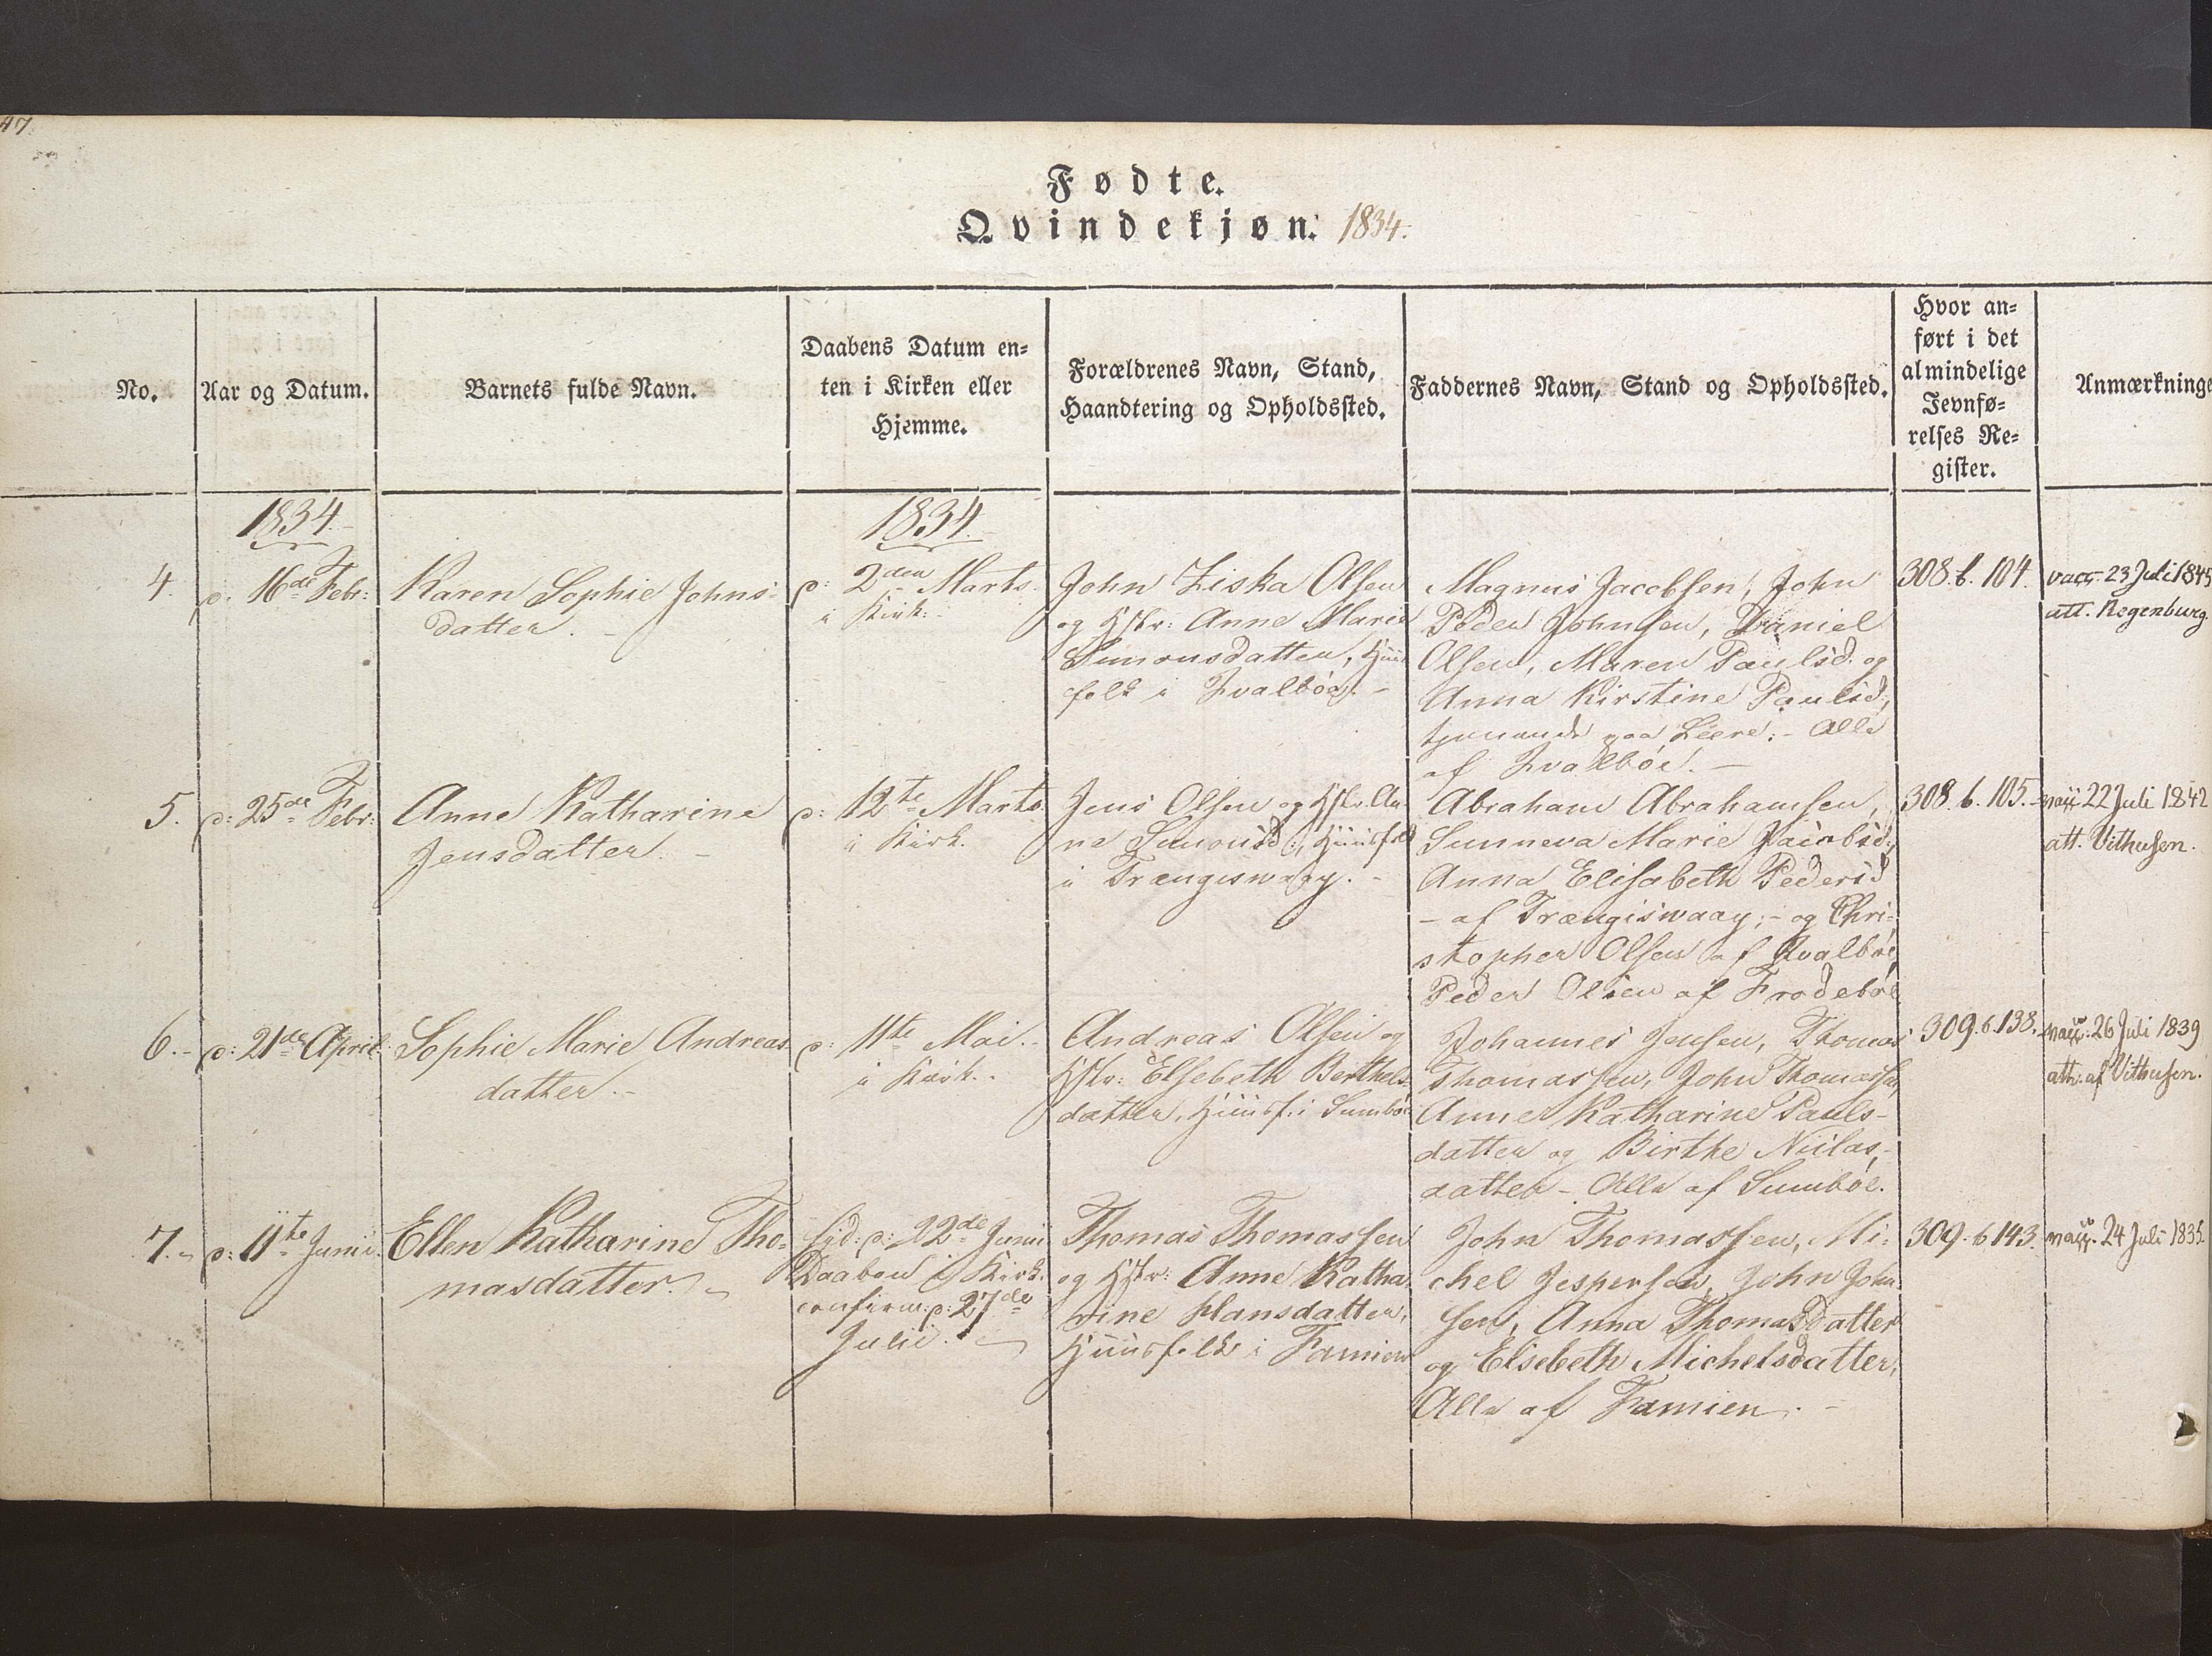 47.
Fødte.
Qvindekjøn. 1834.
No.
Aar og Datum.
Barnets fulde Navn.
Daabens Datum en=
ten i Kirken eller
Hjemme.
Forældrenes Navn, Stand,
Haandtering og Opholdssted.
Faddernes Navn, Stand og Opholdssted.
Hvor an=
ført i det
almindelige
Jevnfø=
relses Re=
gister.
Anmærkninge
1834.
1834.
4.
d: 16de Febr:
Karen Sophie Johns-
datter.
d: 2den Marts
i Kirk:
John Ziska Olsen
og Hstr: Anne Marie
Simonsdatter, Huus
folk i Qvalböe.
Magnus Jacobsen, John
Peder Johnsen, Daniel
Olsen, Maren Paulsd. og
Anna Kirstine Paulsd.,
tjenende paa Leere. - Alle
af Qvalböe.
308. b. 104.
vacc. 23 Juli 1845
att. Regenburg.
5.
d: 25de Febr:
Anne Katharine
Jensdatter.
d: 12te Marts
i Kirk.
Jens Olsen og Hstr. An-
ne Simonsd:, Huusfolk
i Trangiswaag.
Abraham Abrahamsen,
Sunneva Marie Jacobsd.,
Anna Elisabeth Pedersd
- af Trængiswaag; - og Chri-
stopher Olsen af Qvalböe,
Peder Olsen af Frodeböe
308. b. 105.
vacc. 22 Juli 1842
att. Vithusen.
6.
d: 21de April
Sophie Marie Andreas-
datter.
d: 11te Mai.
i Kirk.
Andreas Olsen og
Hstr: Elsebeth Berthels-
datter, Huusf. i Sumböe
Johannes Jensen, Thomas
Thomassen, John Thomassen,
Anne Katharine Pauls-
datter og Birthe Niclas-
datter - Alle af Sumböe.
309. b. 138.
vacc. 26 Juli 1839
att. af Vithusen.
7.
d: 11te Junii
Ellen Katharine Tho-
masdatter.
Hjd: d: 22de Junii
Daaben i Kirk.
confirm. d: 27de
Julii.
Thomas Thomassen
og Hstr: Anne Katha-
rine Hansdatter,
Huusfolk i Famien
John Thomassen, Mi-
chel Jespersen, John John-
sen, Anna Thomasdatter
og Elsebeth Michelsdatter,
Alle af Famien.
309. b 143.
vacc. 24 Juli 1835.